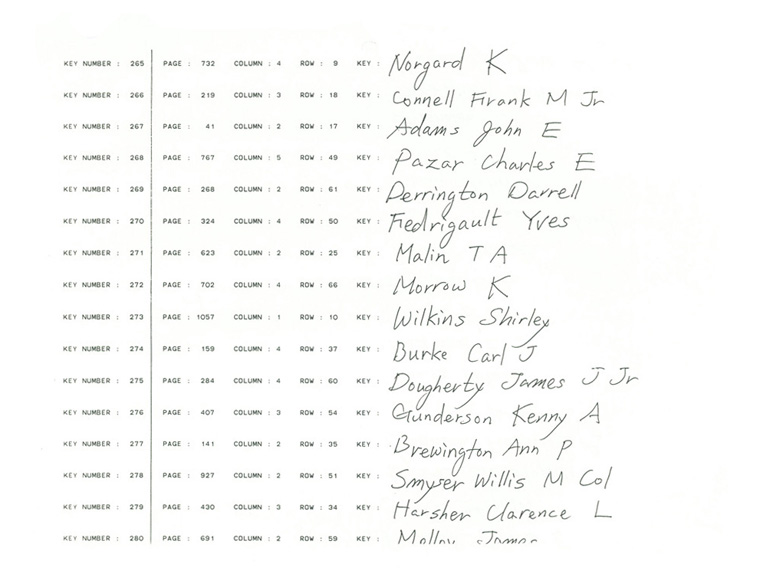 KEY NUMBER : 265 PAGE : 732 COLUMN : 4 ROW : 9 KEY : Norgard K
KEY NUMBER : 266 PAGE : 219 COLUMN : 3 ROW : 18 KEY : Connell Frank M Jr
KEY NUMBER : 267 PAGE : 41 COLUMN : 2 ROW : 17 KEY : Adams John E
KEY NUMBER : 268 PAGE : 767 COLUMN : 5 ROW : 49 KEY : Pazar Charles E
KEY NUMBER : 269 PAGE : 268 COLUMN : 2 ROW : 61 KEY : Derrington Darrell
KEY NUMBER : 270 PAGE : 324 COLUMN : 4 ROW : 50 KEY : Fedrigault Yves
KEY NUMBER : 271 PAGE : 623 COLUMN : 2 ROW : 25 KEY : Malin T A
KEY NUMBER : 272 PAGE : 702 COLUMN : 4 ROW : 66 KEY : Morrow K
KEY NUMBER : 273 PAGE : 1057 COLUMN : 1 ROW : 10 KEY : Wilkins Shirley
KEY NUMBER : 274 PAGE : 159 COLUMN : 4 ROW : 37 KEY : Burke Carl J
KEY NUMBER : 275 PAGE : 284 COLUMN : 4 ROW : 60 KEY : Dougherty James J Jr
KEY NUMBER : 276 PAGE : 407 COLUMN : 3 ROW : 54 KEY : Gunderson Kenny A
KEY NUMBER : 277 PAGE : 141 COLUMN : 2 ROW : 35 KEY : Brewington Ann P
KEY NUMBER : 278 PAGE : 927 COLUMN : 2 ROW : 51 KEY : Smyser Willis M Col
KEY NUMBER : 279 PAGE : 430 COLUMN : 3 ROW : 34 KEY : Harsher Clarence L
KEY NUMBER : 280 PAGE : 691 COLUMN : 2 ROW : 59 KEY : Molloy James